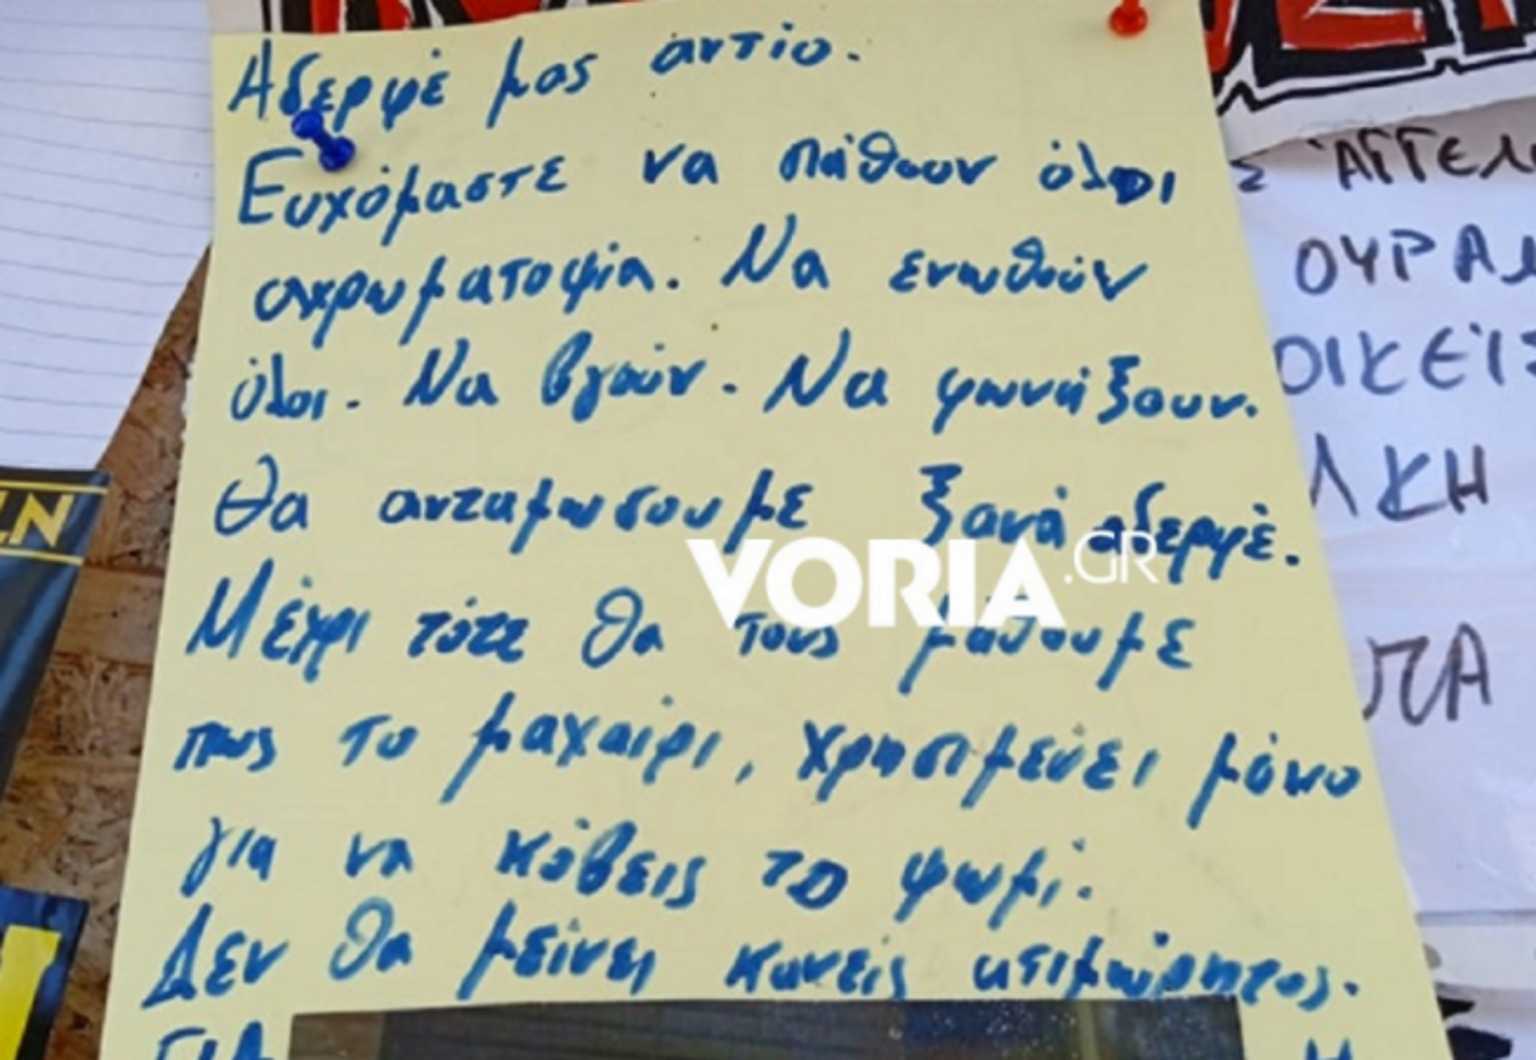 Αδερφέ μας αντίο.
Ευχόμαστε να πάθουν όλοι
αχρωματοψία. Να ενωθούν
όλοι. Να βγούν. Να φωνάξουν.
Θα ανταμωσουμε ξανά αδερφέ.
Μέχρι τότε θα τους μάθουμε
πως το μαχαίρι, χρησιμεύει μόνο
για να κόβεις το ψωμί.
Δεν θα μείνει κανείς ατιμώρητος.
VORIA.GR
ΟΥΡΑ
ΟΙΚΕΊ
ΛΚΗ
ΠΑ